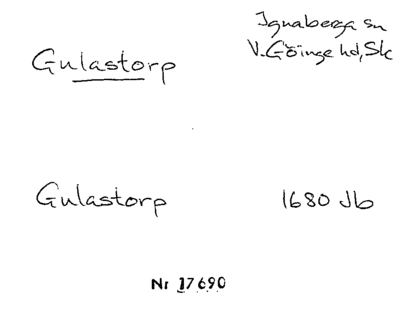 Gulastorp
Ignaberga sn
V. Göinge hd, Sk
Gulastorp
1680 Jb
Nr 17690